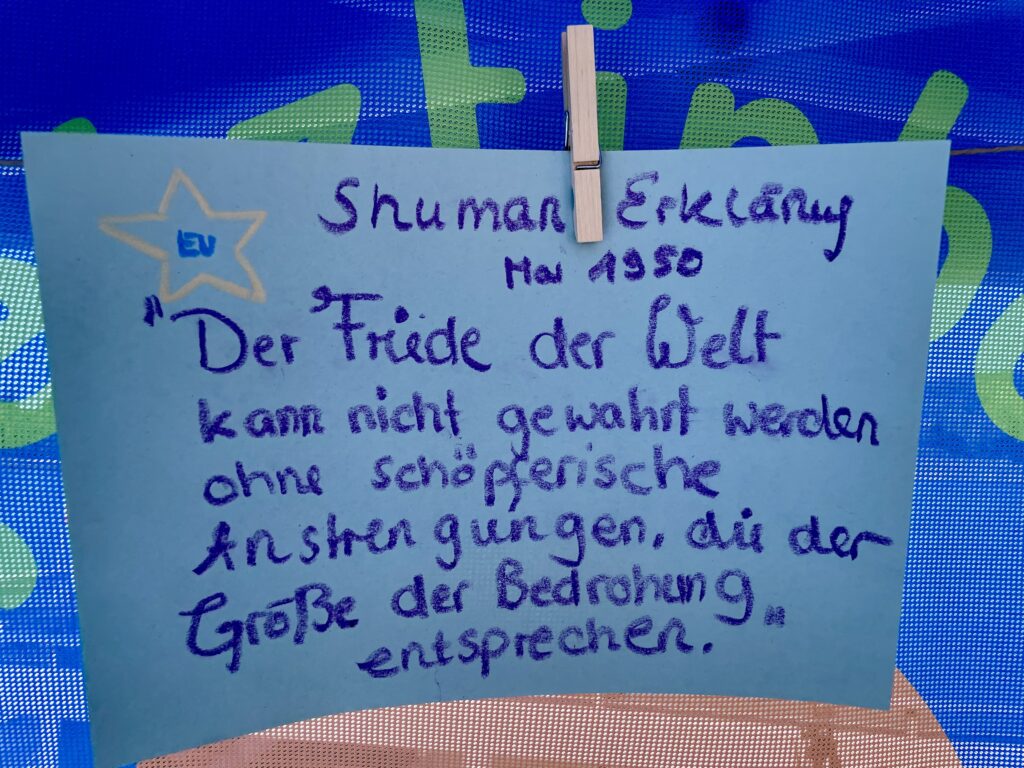 EU
Shuman Erklärung
Mai 1950
"Der Friede der Welt
kann nicht gewahrt werden
ohne schöpferische
Anstrengungen, die der
Größe der Bedrohung
entsprechen."